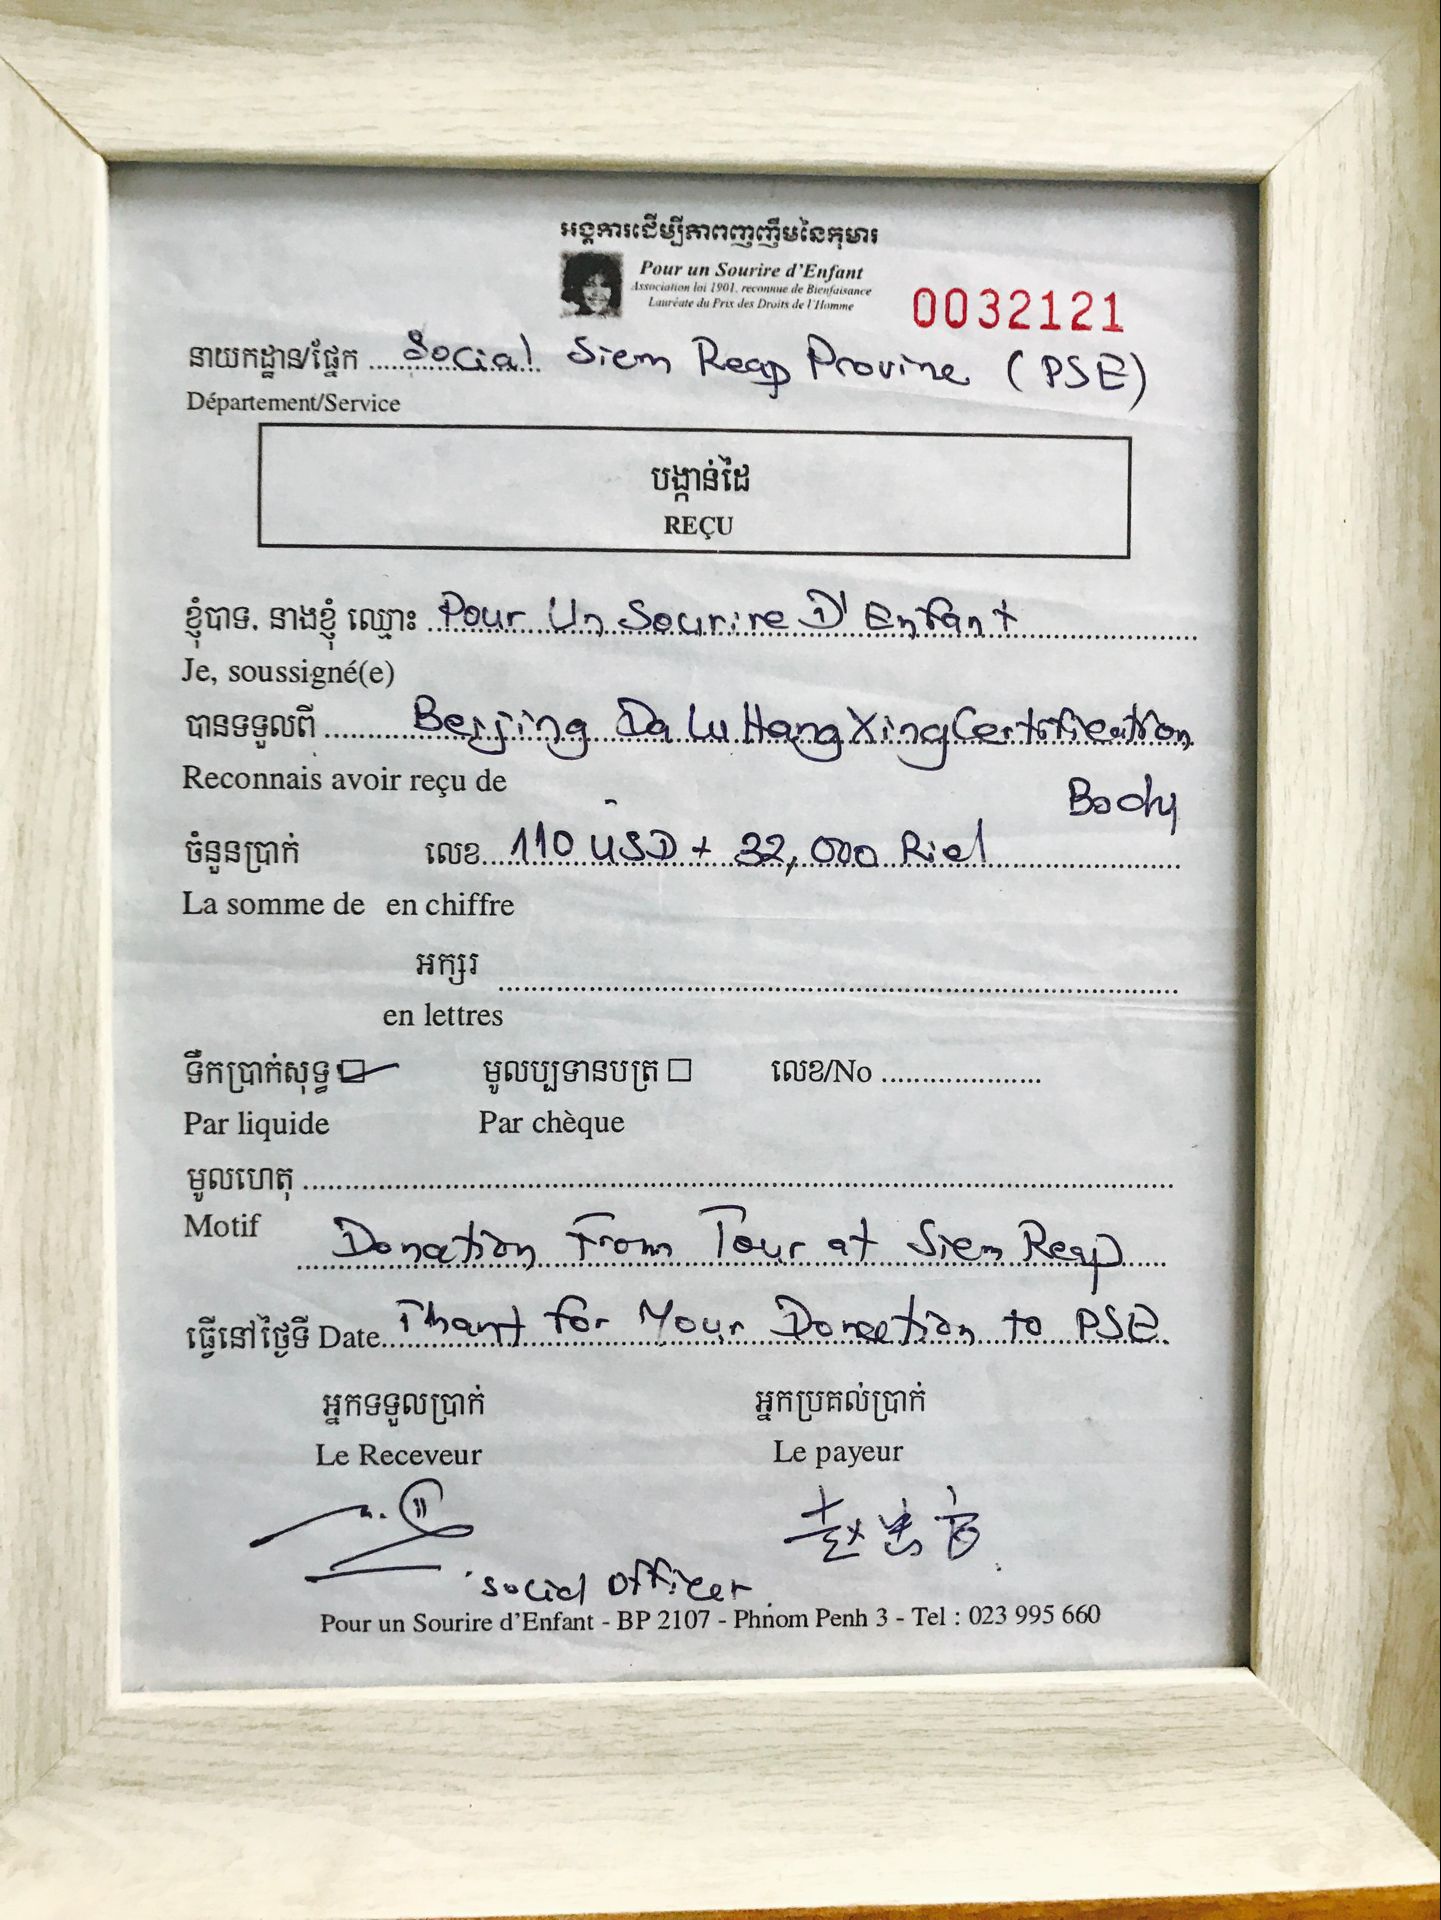 អង្គការដើម្បីភាពញញឹមនៃកុមារ
Pour un Sourire d'Enfant
Association loi 1901, reconnue de Bienfaisance
Lauréate du Prix des Droits de l'Homme
0032121
នាយកដ្ឋាន/ផ្នែក Social Siem Reap Provine (PSE)
Département/Service
បង្កាន់ដៃ
REÇU
ខ្ញុំបាទ. នាងខ្ញុំ ឈ្មោះ Pour Un Sourire D'Enfant
Je, soussigné(e)
បានទទួលពី Beijing Da Lu Hang Xing Certification
Reconnais avoir reçu de
Body
ចំនួនប្រាក់ លេខ 110 USD + 32,000 Riel
La somme de en chiffre
អក្សរ
en lettres
ទឹកប្រាក់សុទ្ធ មូលប្បទានបត្រ លេខ/No
Par liquide Par chèque
មូលហេតុ
Motif Donation From Tour at Siem Reap
ធ្វើនៅថ្ងៃទី Date Thant for Your Donation to PSE.
អ្នកទទួលប្រាក់ អ្នកប្រគល់ប្រាក់
Le Receveur Le payeur
social officer
Pour un Sourire d'Enfant - BP 2107 - Phnom Penh 3 - Tel : 023 995 660